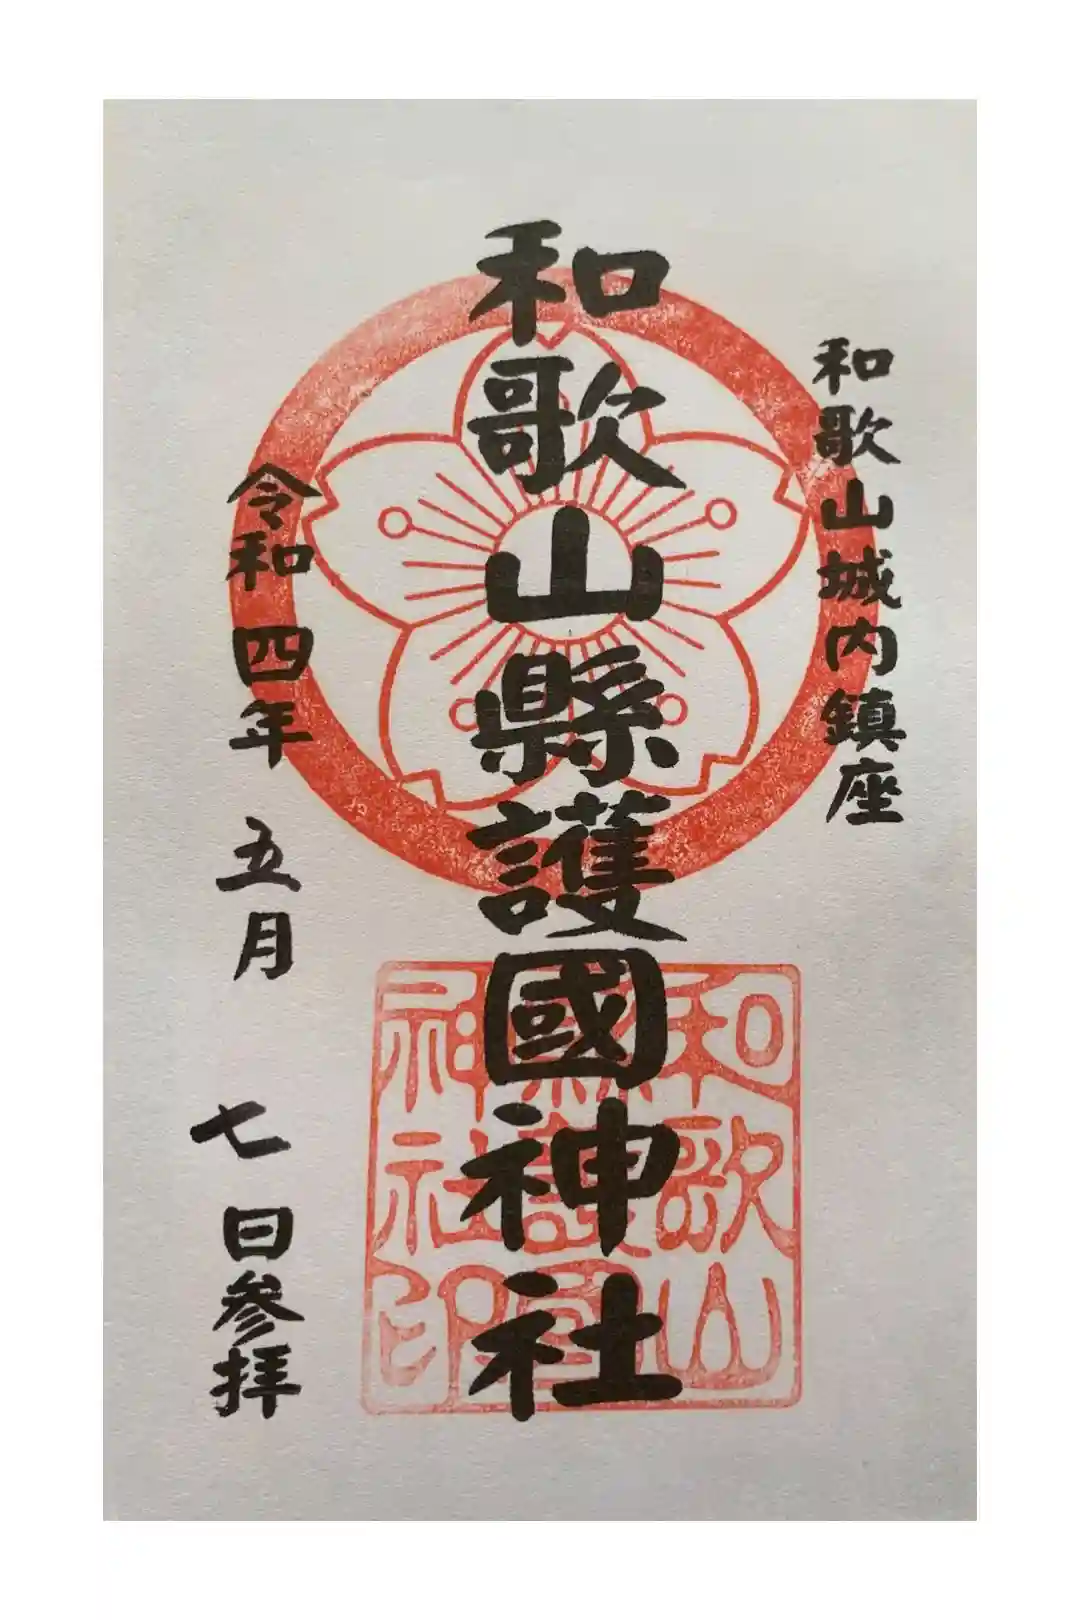 和歌山城内鎮座
和歌山縣護國神社
令和四年五月七日参拝
和歌山
縣護國
神社印